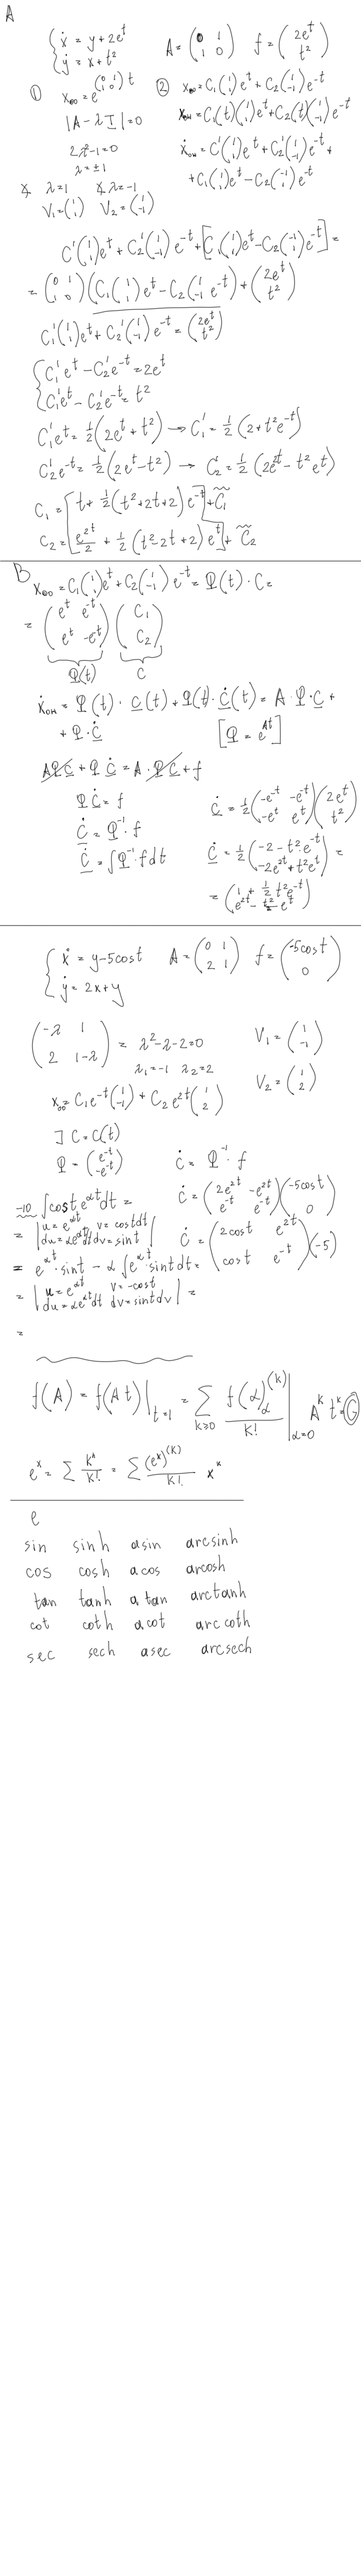 A
{ ẋ = y + 2e^t
{ ẏ = x + t²
A = (0 1; 1 0) f = (2e^t; t²)
① x₀₀ = e^(0 1; 1 0)t
|A - λI| = 0
2λ²-1=0
λ = ±1
∢ λ=1 ∢ λ=-1
V₁=(1; 1) V₂=(1; -1)
② x₀₀ = C₁(1; 1)e^t + C₂(1; -1)e^-t
xₒₙ = C₁(t)(1; 1)e^t + C₂(t)(1; -1)e^-t
ẋₒₙ = C'(1; 1)e^t + C₂'(1; -1)e^-t +
+ C₁(1; 1)e^t - C₂(1; -1)e^-t
C'(1; 1)e^t + C₂'(1; -1)e^-t + [C₁(1; 1)e^t - C₂(1; -1)e^-t] =
= (0 1; 1 0)(C₁(1; 1)e^t - C₂(1; -1 e^-t) + (2e^t; t²)
C₁'(1; 1)e^t + C₂'(1; -1)e^-t = (2e^t; t²)
{ C₁'e^t - C₂'e^-t = 2e^t
{ C₁'e^t - C₂'e^-t = t²
C₁'e^t = ½(2e^t + t²) → C₁' = ½(2 + t²e^-t)
C₂'e^-t = ½(2e^t - t²) → C₂' = ½(2e^2t - t²e^t)
C₁ = [t + ½(t²+2t+2)e^-t] + C̃₁
C₂ = [e^2t/2 + ½(t²-2t+2)e^t] + C̃₂
B
x₀₀ = C₁(1; 1)e^t + C₂(1; -1)e^-t = Φ(t) · C =
= (e^t e^-t; e^t -e^-t)(C₁; C₂)
Φ(t) C
ẋₒₙ = Φ̇(t) · C(t) + Φ(t) · Ċ(t) = A · Φ · C +
+ Φ · Ċ [Φ = e^At]
AΦC + Φ Ċ = A · ΦC + f
ΦĊ = f
Ċ = Φ⁻¹ · f
Ċ = ∫Φ⁻¹ · f dt
Ċ = ½(-e^-t -e^-t; -e^t e^t)(2e^t; t²)
Ċ = ½(-2 - t² · e^-t; -2e^2t + t²e^t) =
= (1 + ½ t²e^-t; e^2t - t²/2 e^t)
{ ẋ = y - 5cost
{ ẏ = 2x + y
A = (0 1; 2 1) f = (-5cost; 0)
(-λ 1; 2 1-λ) = λ²-λ-2=0
λ₁=-1 λ₂=2
V₁ = (1; -1)
V₂ = (1; 2)
x₀₀ = C₁e^-t(1; -1) + C₂e^2t(1; 2)
] C = C(t)
Φ = (e^-t; -e^-t) Ċ = Φ⁻¹ · f
Ċ = (2e^2t -e^2t; e^-t e^-t)(-5cost; 0)
Ċ = (2cost e^2t; cost e^-t)(-5)
-10 ∫cost e^αt dt =
= | u = e^αt v = cost dt; du = αe^αt dt dv = sint | =
= e^αt · sint - α ∫e^αt · sint dt =
= | u = e^αt v = -cost; du = αe^αt dt dv = sint dv | =
=
f(A) = f(At)|t=1 = ∑k≥0 f(α)α^(k)/k! |α=0 A^k t^k = G
e^x = ∑ k^k/k! = ∑ (e^x)^(k)/k! x^k
e
sin sinh asin arcsinh
cos cosh acos arcosh
tan tanh atan arctanh
cot coth acot arccoth
sec sech asec arcsech